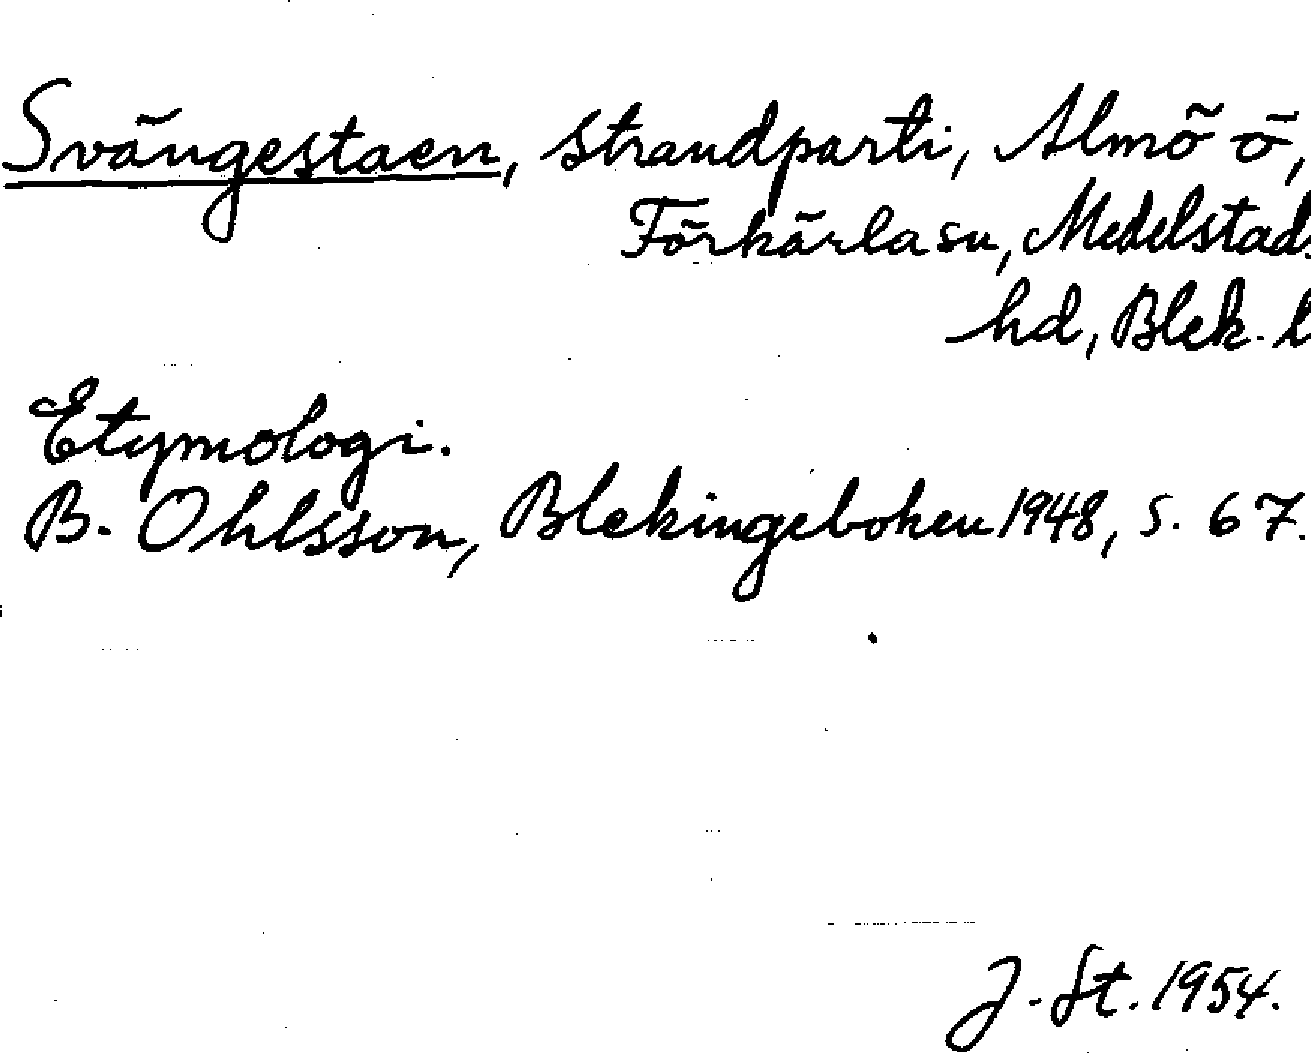 Svängestaen, strandparti, Almö ö,
Förkärla sn, Medelstads
hd, Blek. l
Etymologi.
B. Ohlsson, Blekingeboken 1948, s. 67.
J. St. 1954.